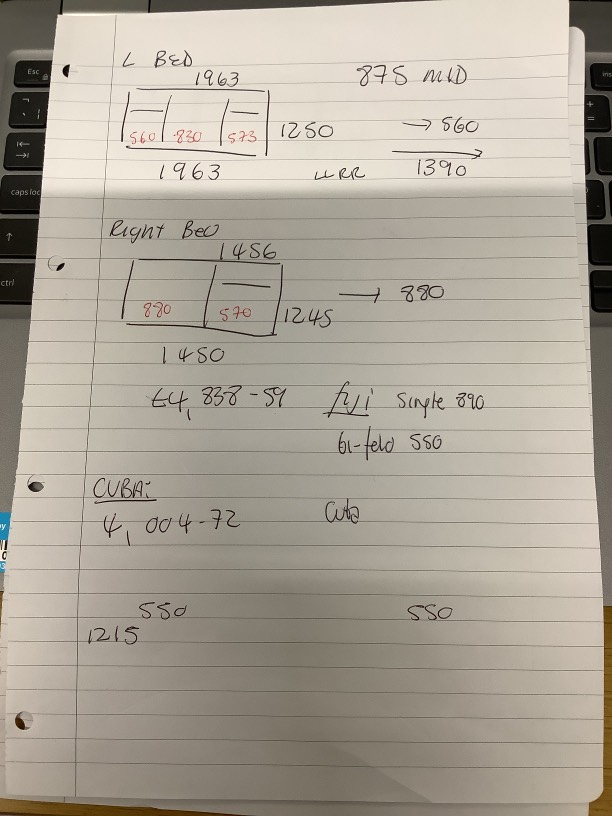 L BED
1963
875 MID
560 830 573
1250
→ 560
1963
LLRR
1390
Right Bed
1456
880 570
1245
→ 880
1450
£4,838-59
fyi single 890
bi-fold 550
CUBA:
4,004-72
Cuba
550
550
1215
Esc
caps loc
ctrl